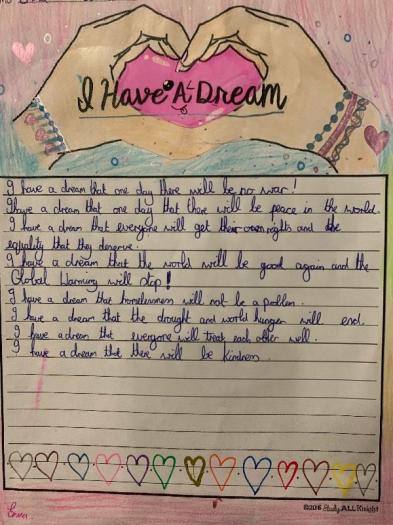 I Have A Dream
I have a dream that one day there will be no war!
I have a dream that one day that there will be peace in the world.
I have a dream that everyone will get their own rights and the
equality that they deserve.
I have a dream that the world will be good again and the
Global Warming will stop!
I have a dream that homelessness will not be a problem.
I have a dream that the drought and world hunger will end.
I have a dream that everyone will treat each other well.
I have a dream that there will be kindness
©2016 Study ALL Knight